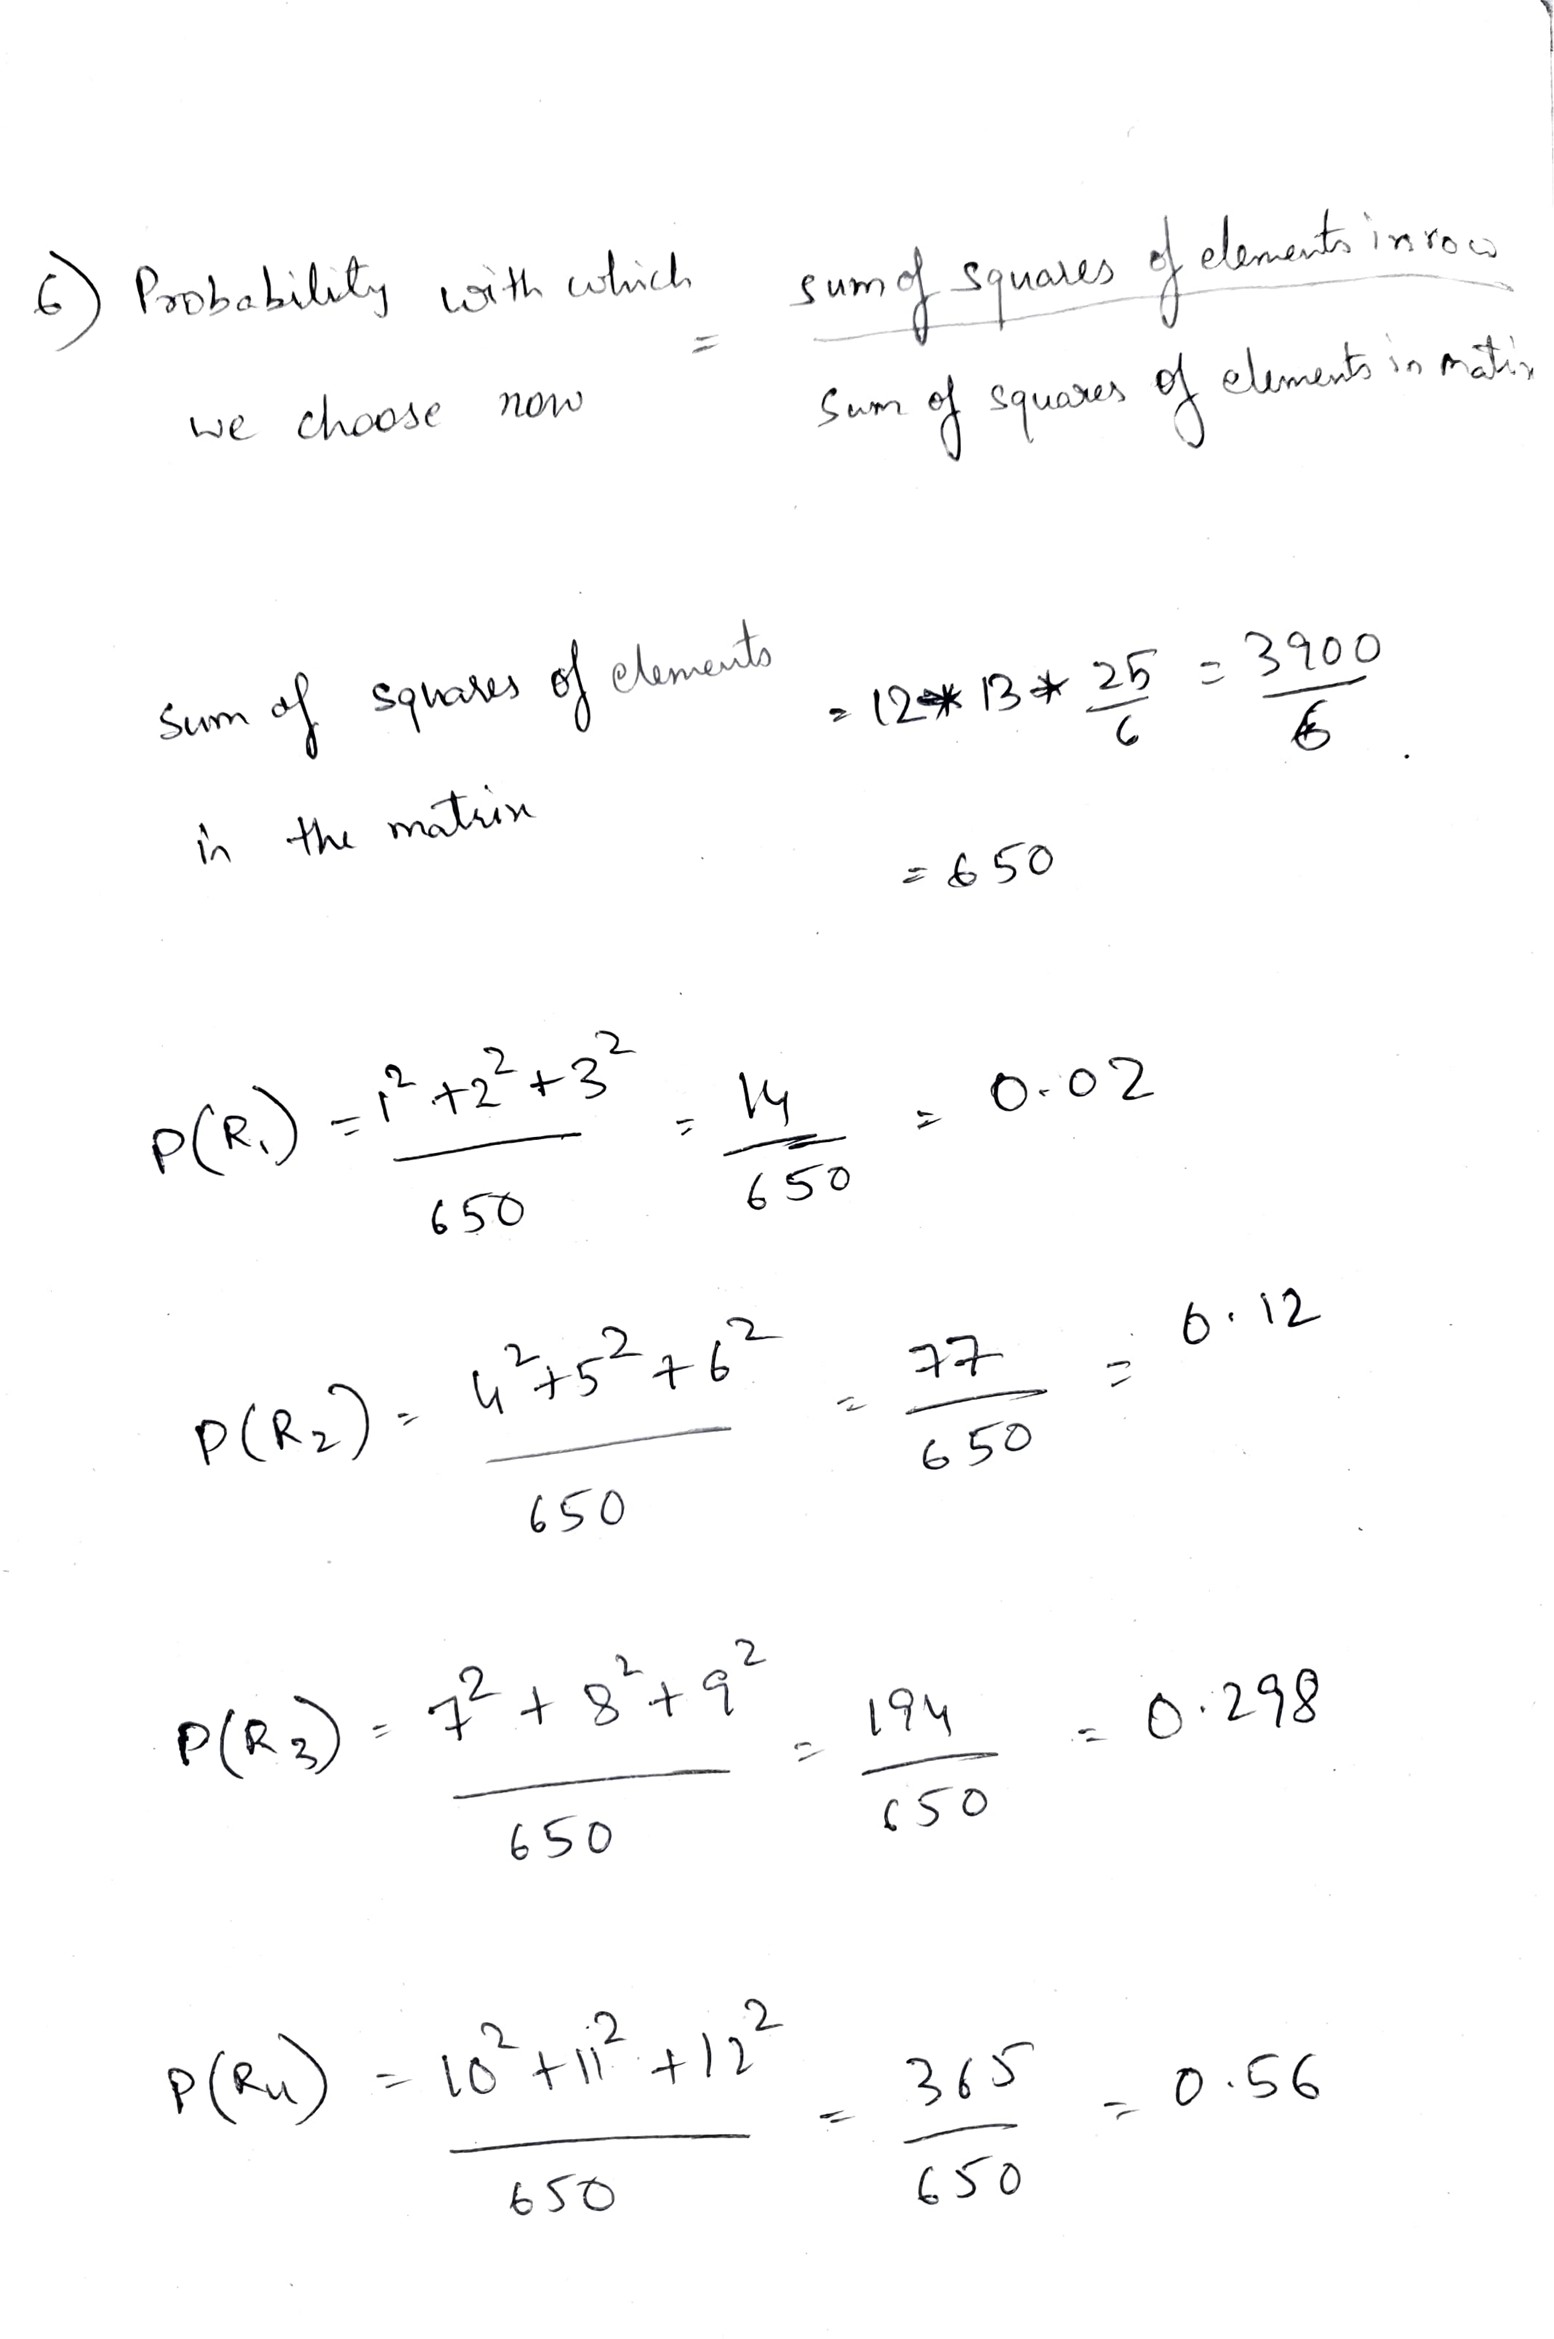 6) Probability with which we choose now = sum of squares of elements in row / sum of squares of elements in matix
sum of squares of elements in the matrix = 12 * 13 * 25/6 = 3900/6
= 650
P(R1) = 1² + 2² + 3² / 650 = 14/650 = 0.02
P(R2) = 4² + 5² + 6² / 650 = 77/650 = 0.12
P(R3) = 7² + 8² + 9² / 650 = 194/650 = 0.298
P(R4) = 10² + 11² + 12² / 650 = 365/650 = 0.56